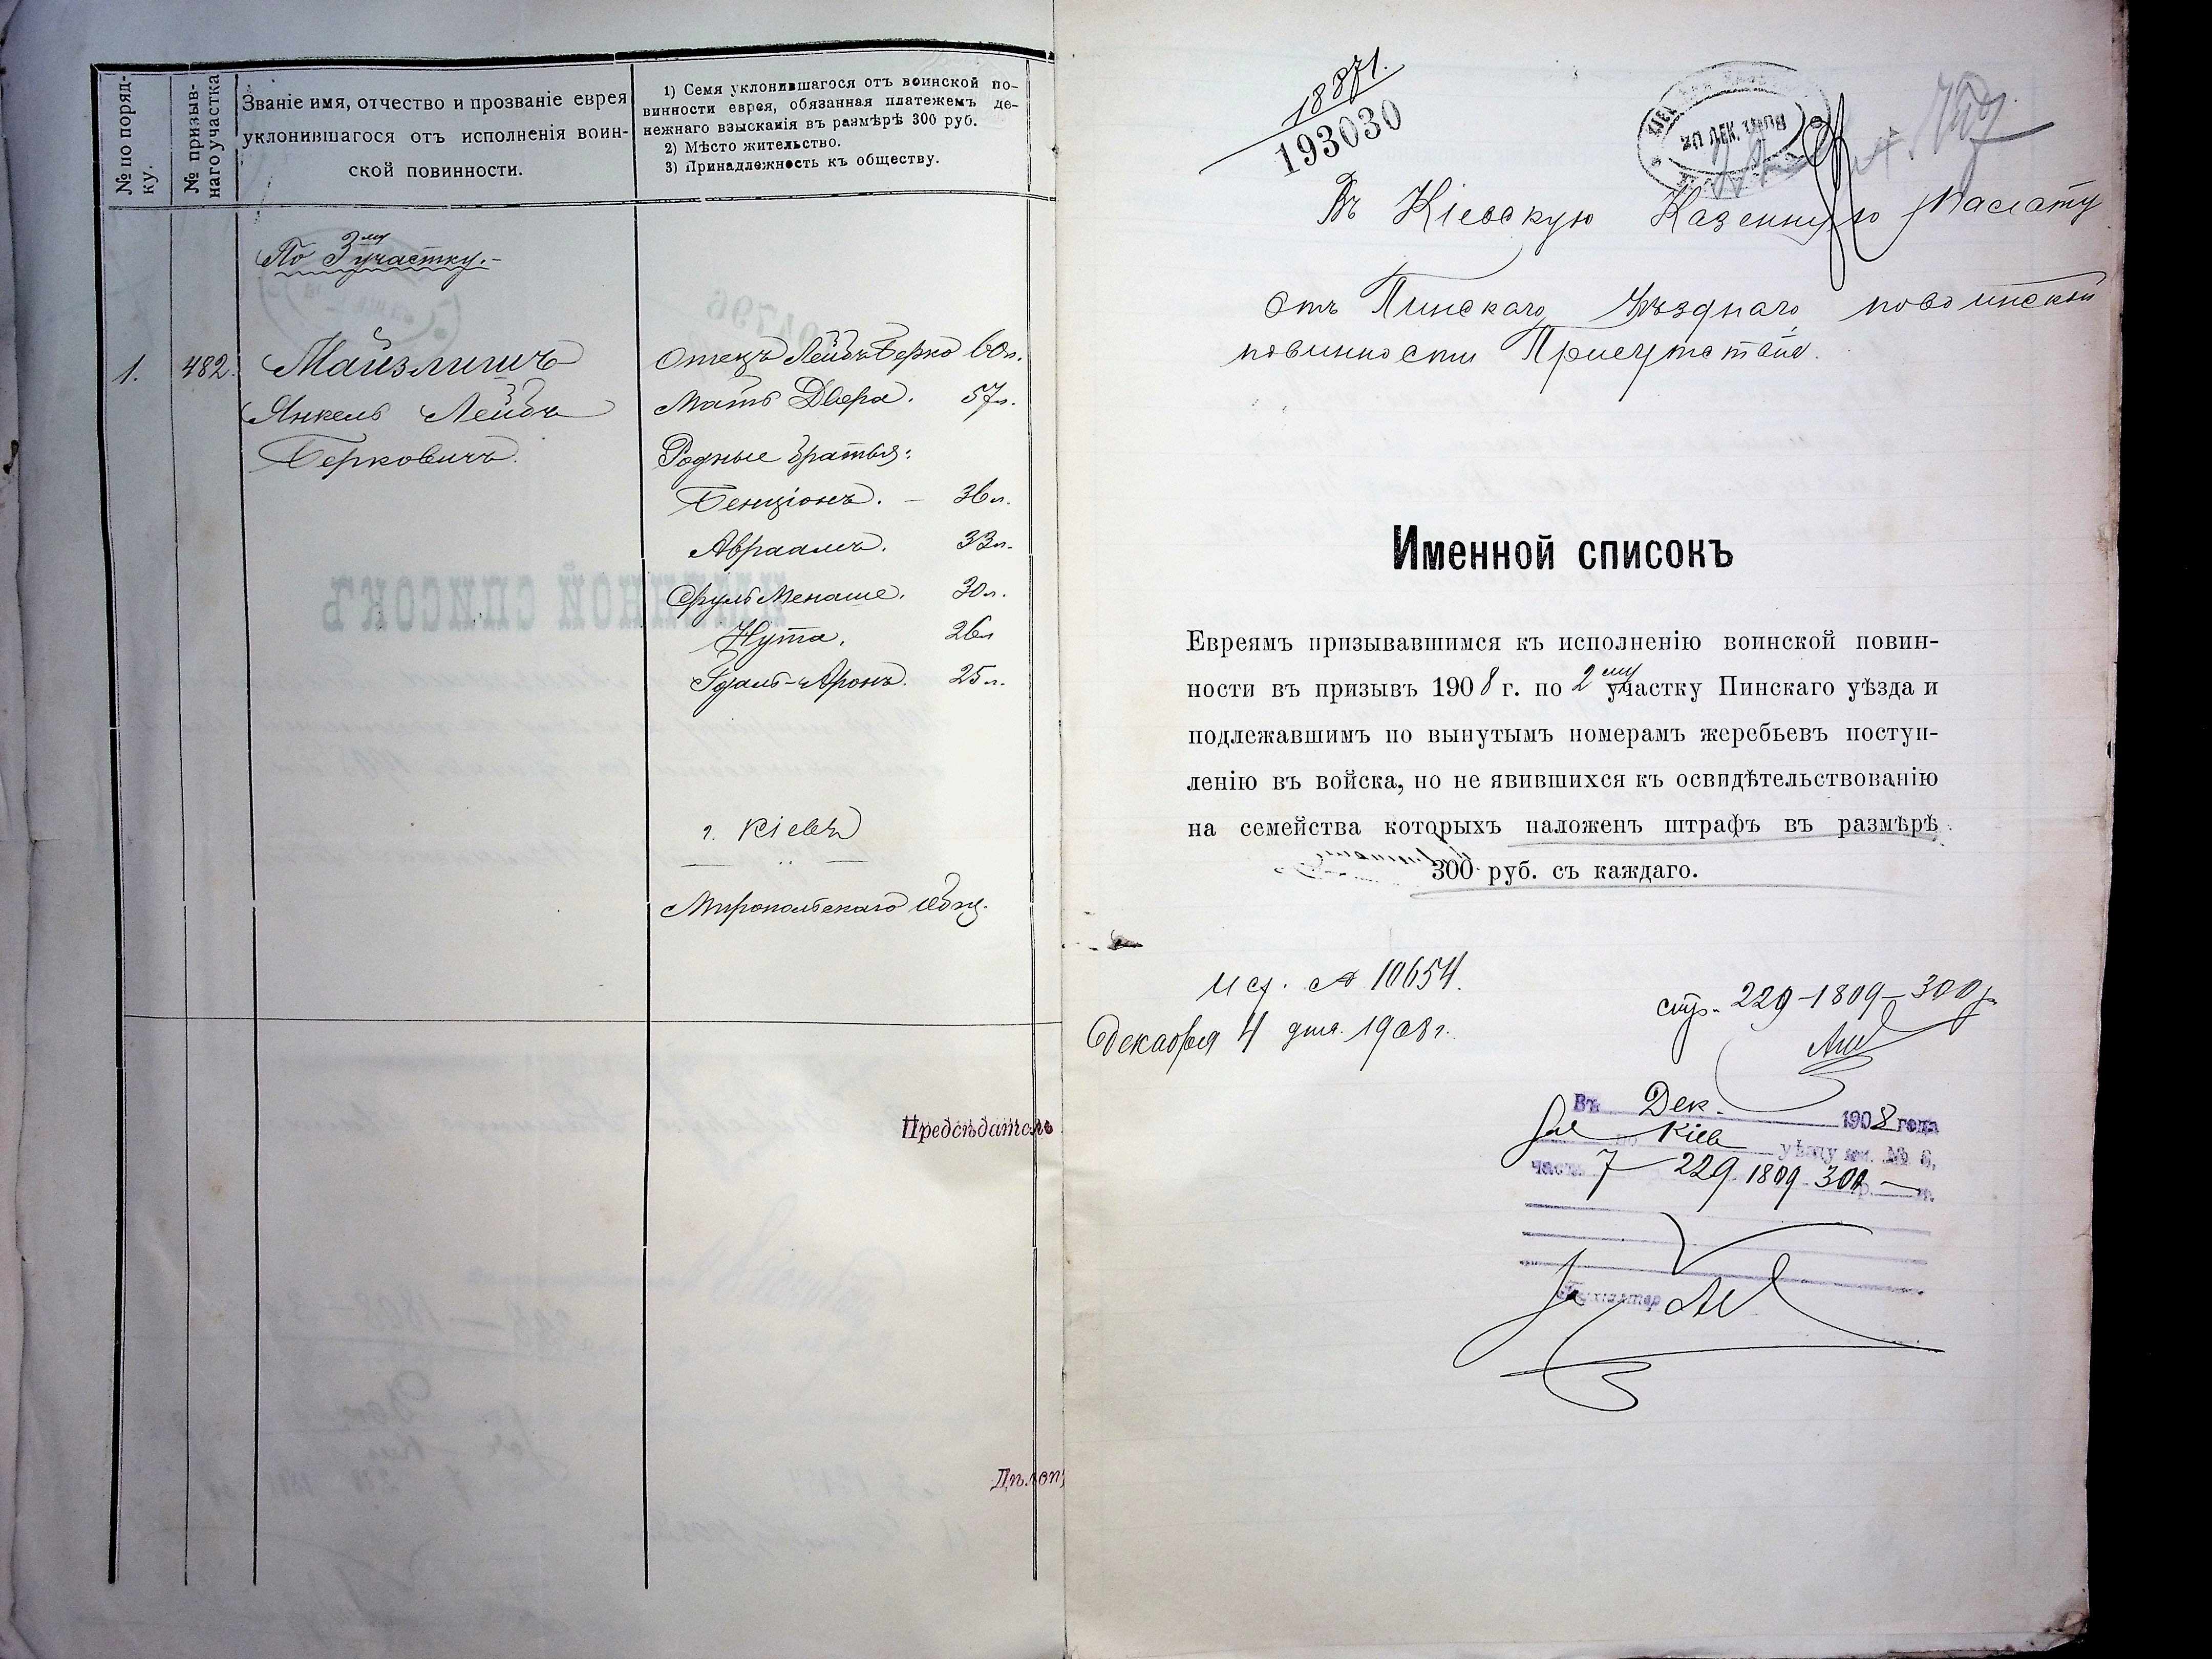 № по поряд-
ку.
№ призыв-
наго участка
Званіе имя, отчество и прозваніе еврея
уклонившагося отъ исполненія воин-
ской повинности.
1) Семя уклонившагося отъ воинской по-
винности еврея, обязанная платежемъ де-
нежнаго взысканія въ размѣрѣ 300 руб.
2) Мѣсто жительство.
3) Принадлежность къ обществу.
По 3му участку.-
1.
482.
Майзлишъ
Янкель Лейбъ
Берковичъ.
Отецъ Лейбъ Берко 60л.
Мать Двера. 57л.
Родные братья:
Бенціонъ. — 36л.
Авраамъ. 33л.
Сруль Менаше. 30л.
Нута. 26л
Гдаль-Аронъ. 25л.
г. Кіевъ
Миропольскаго общ.
Предсѣдатель
Дѣлоп
18871.
193030
20 ДЕК. 1908
Въ Кіевскую Казенную Палату
Отъ Пинскаго Уѣзднаго по воинской
повинности Присутствія.
Именной списокъ
Евреямъ призывавшимся къ исполненію воинской повин-
ности въ призывъ 1908 г. по 2му участку Пинскаго уѣзда и
подлежавшимъ по вынутымъ номерамъ жеребьевъ поступ-
ленію въ войска, но не явившихся къ освидѣтельствованію
на семейства которыхъ наложенъ штрафъ въ размѣрѣ
300 руб. съ каждаго.
№ 10654.
Декабря 4 дня 1908 г.
стр. 229-1809-300р
Въ Дек. 1908 года
по Кіев уѣзду кн. № 6,
част. 7 229 1809 300 —
Бухгалтер